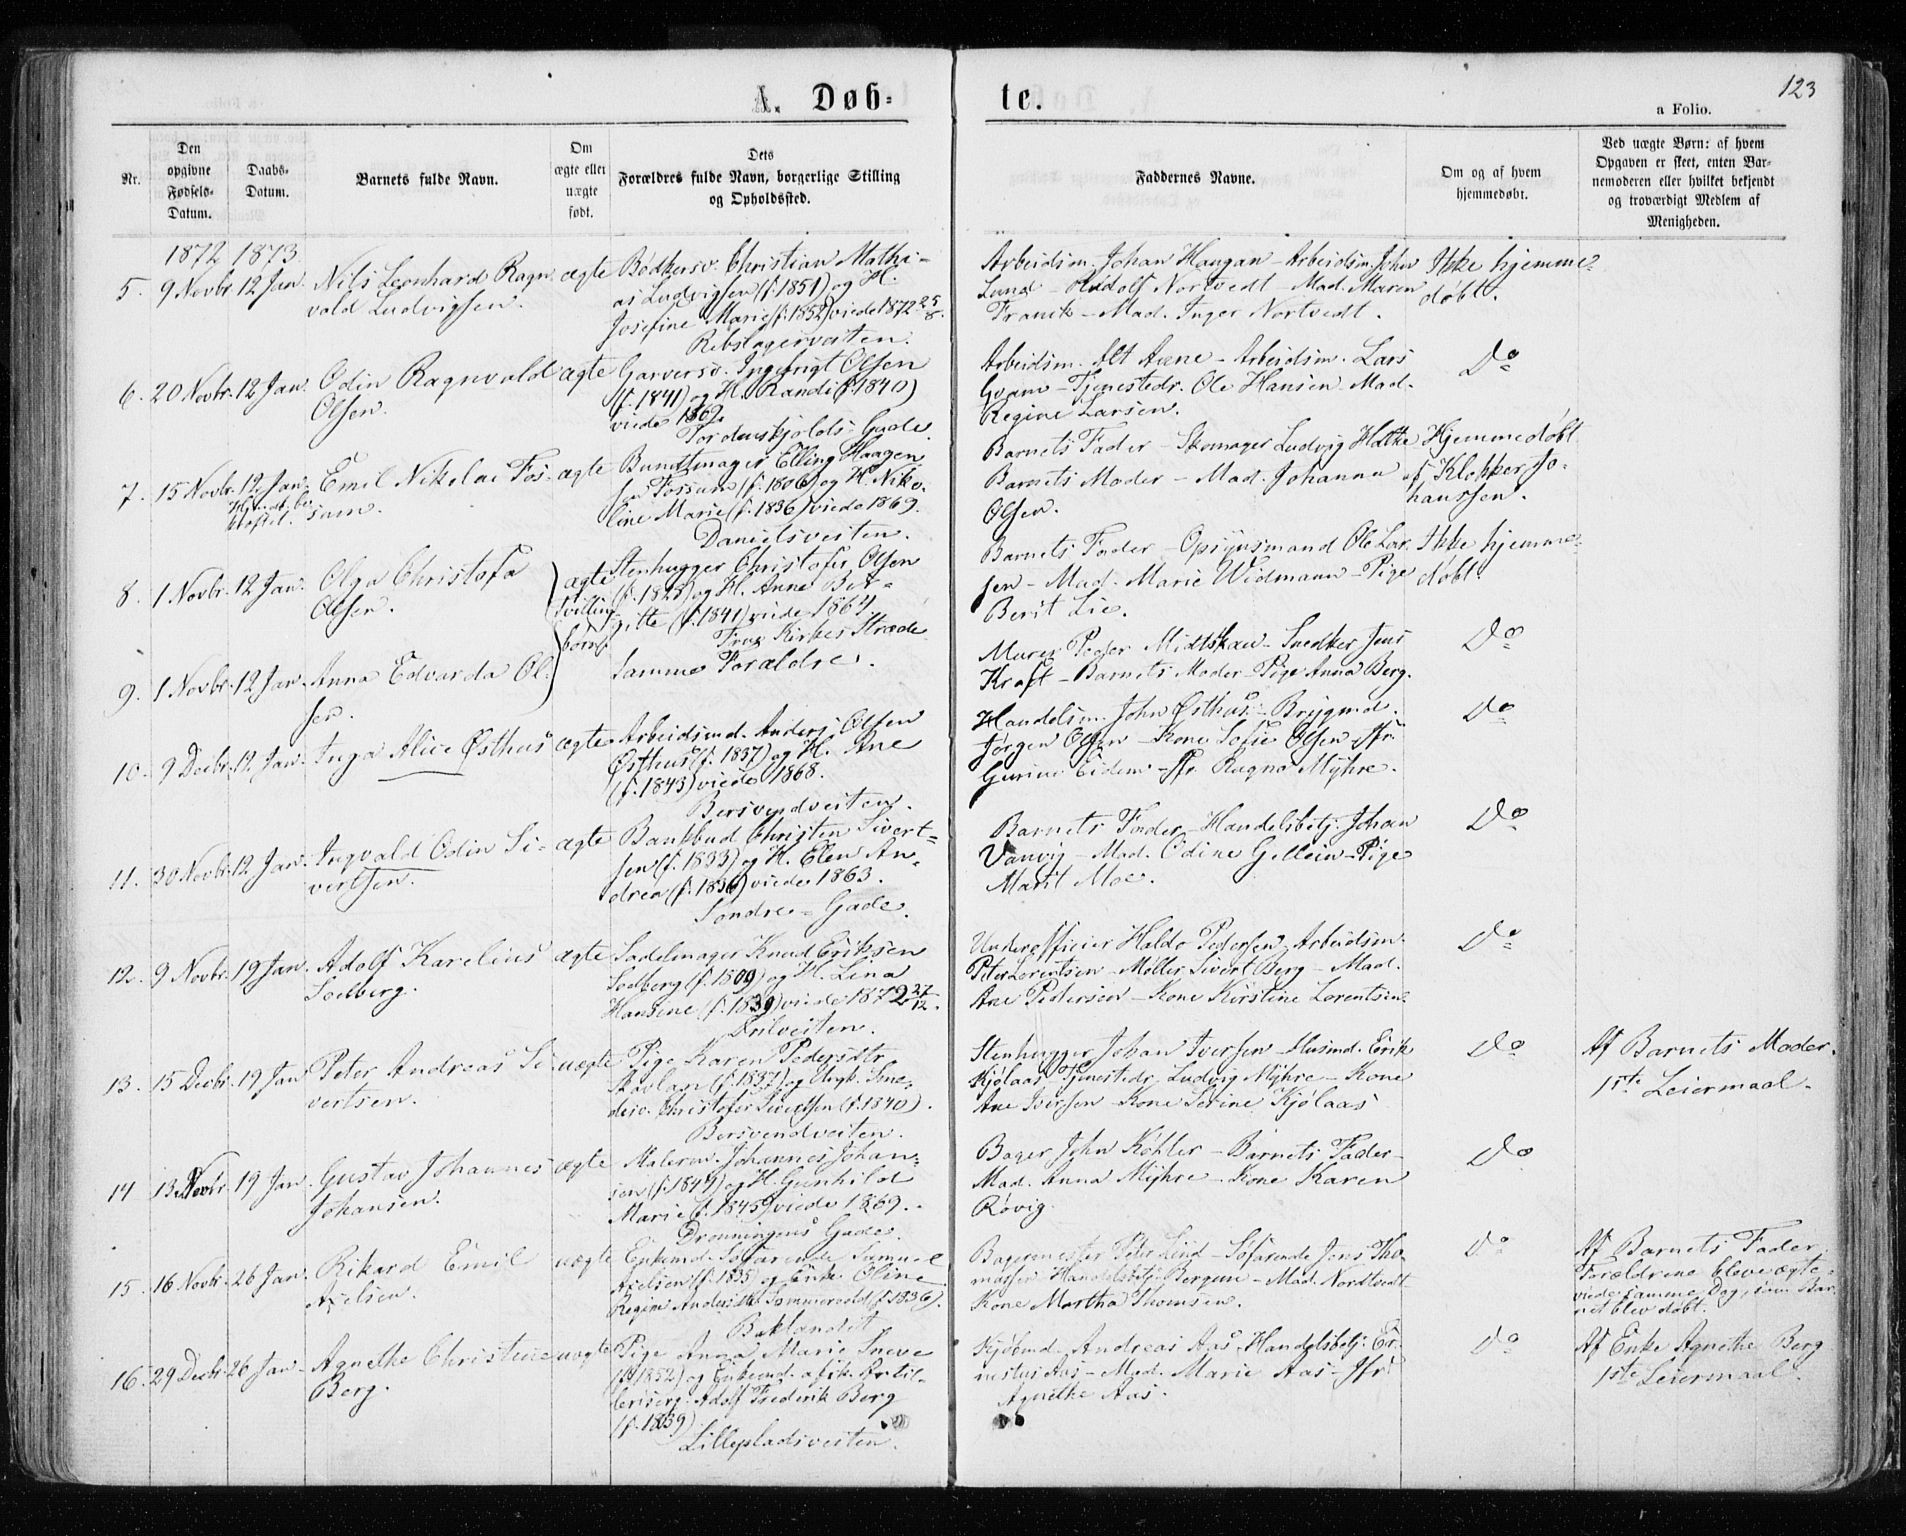 123
A. Døb-
te.
a Folio.
Nr.
Den opgivne Fødsels-Datum.
Daabs-Datum.
Barnets fulde Navn.
Om ægte eller uægte født.
Dets Forældres fulde Navn, borgerlige Stilling og Opholdssted.
Faddernes Navne.
Om og af hvem hjemmedøbt.
Ved uægte Børn: af hvem Opgaven er skeet, enten Barnemoderen eller hvilket bekjendt og troværdigt Medlem af Menigheden.
1872 1873
5. 9 Novbr. 12 Jan. Nils Leonhard Ragn-
vald Ludvigsen.
ægte
Bødkersv. Christian Mathi-
as Ludvigsen (f. 1851) og H.
Josefine Marie (f. 1852) viede 1872 25/8.
Rebslagerveiten.
Arbeidsm. Johan Haugan - Arbeidsm. John
Lund - Rudolf Nortvedt - Mad. Maren
Franck - Mad. Inger Nortvedt.
Ikke hjemme-
døbt.
6. 20 Novbr. 12 Jan. Odin Ragnvald
Olsen.
ægte
Garversv. Ingebrigt Olsen
(f. 1841) og H. Randi (f. 1840)
viede 1869.
Tordenskjolds-Gade.
Arbeidsm. Alt Aune - Arbeidsm. Lars
Gvam - Tjenestedr. Ole Hansen - Mad.
Regine Larsen.
Do
7. 15 Novbr. 12 Jan. Emil Nikolai Fos-
sum.
ægte
Bundtmager Elling Haagen-
sen Fossum (f. 1806) og H. Niko-
line Marie (f. 1836) viede 1869.
Danielsveiten.
Barnets Fader - Skomager Ludvig Halke
Barnets Moder - Mad. Johanna
Olsen.
Hjemmedøbt
af Klokker Jo-
hanssen.
8. 1 Novbr. 12 Jan. Olga Christofa
Olsen.
ægte
Tvilling
børn
Stenhugger Christofer Olsen
(f. 1828) og H. Anne Bir-
gitte (f. 1841) viede 1864.
Frue Kirkes Stræde
Barnets Fader - Opsynsmand Ole Lar-
sen - Mad. Marie Widmann - Pige
Berit Lie.
Ikke hjemme-
døbt.
9. 1 Novbr. 12 Jan. Anna Edvarda Ol-
sen.
Samme Forældre.
Murer Peder Midtskau - Snedker Jens
Kraft - Barnets Moder - Pige Anna Berg.
Do
10. 9 Decbr. 12 Jan. Inga Alice Østhus
ægte
Arbeidsmd. Anders Olsen
Østhus (f. 1837) og H. Ane
(f. 1843) viede 1868.
Bersvendveiten.
Handelsm. John Østhus - Brygmd.
Jørgen Olsen - Kone Sofie Olsen - Jfr.
Gurine Eidem - Jfr. Ragna Myhre.
Do
11. 30 Novbr. 12 Jan. Ingvald Odin Si-
vertsen.
ægte
Bankbud Christen Sivert-
sen (f. 1833) og H. Elen An-
drea (f. 1836) viede 1863.
Søndre-Gade.
Barnets Fader - Handelsbetj. Johan
Vanvig - Mad. Odine Gellein - Pige
Marit Moe.
Do
12. 9 Novbr. 19 Jan. Adolf Karelius
Soelberg.
ægte
Sadelmager Knud Eriksen
Soelberg (f. 1809) og H. Lina
Hansine (f. 1839) viede 1872 27/12.
Driveiten.
Underofficier Haldo Pedersen - Arbeidsm.
Peter Lorentsen - Møller Sivert Berg - Mad.
Ane Pedersen - Kone Kirstine Lorentsen.
Do
13. 15 Decbr. 19 Jan. Peter Andreas Si-
vertsen.
uægte
Pige Karen Pedersdtr
Skavlan (f. 1837) og Ungk. Sme-
desv. Christofer Sivertsen (f. 1840).
Bersvendveiten.
Stenhugger Johan Iversen - Husmd. Erik
Kjølaas - Tjenestedr. Ludvig Myhre - Kone
Ane Iversen - Kone Serine Kjølaas
Do
Af Barnets Moder.
1ste Leiermaal.
14 13 Novbr. 19 Jan. Gustav Johannes
Johansen.
ægte
Malersv. Johannes Johan-
sen (f. 1849) og H. Gunhild
Marie (f. 1845) viede 1869.
Dronningens Gade.
Bager John Køhler - Barnets Fader -
Mad. Anna Myhre - Kone Karen
Røvig.
Do
15. 16 Novbr. 26 Jan. Rikard Emil
Axelsen.
uægte
Enkemd. Søfarende Samuel
Axelsen (f. 1835) og Enke Oline
Regine Andersdtr Sommervold (f. 1836).
Baklandet
Bagermester Peter Lind - Søfarende Jens Tho-
massen - Handelsbetj. Bergum - Mad. Nordtvedt
Kone Martha Thomsen.
Do
Af Barnets Fader.
Forældrene bleve ægte-
viede samme Dag, som Bar-
net blev døbt.
16. 29 Decbr. 26 Jan. Agnethe Christine
Berg.
uægte
Pige Anna Marie Sneve
(f. 1852) og Enkemd. afsk. Artil-
lerisерg. Adolf Frederik Berg
(f. 1839).
Lillepladsveiten.
Kjøbmd. Andreas Aas - Handelsbetj. Er-
nestus Aas - Mad. Marie Aas - Jfr.
Agnethe Aas.
Do
Af Enke Agnethe Berg
1ste Leiermaal.